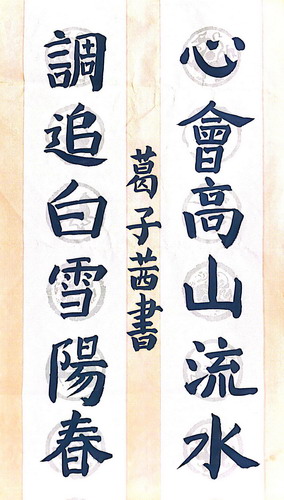 心會高山流水
調追白雪陽春
葛子茜書